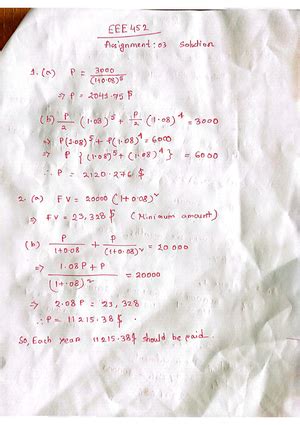 EEE 452
Assignment: 03 Solution
1. (a) P = 3000 / (1+0.08)^5
⇒ P = 2041.75 $
(b) P/2 (1.08)^5 + P/2 (1.08)^4 = 3000
⇒ P(1.08)^5 + P(1.08)^4 = 6000
⇒ P { (1.08)^5 + (1.08)^4 } = 6000
∴ P = 2120.276 $
2. (a) FV = 20000 (1+0.08)^2
⇒ FV = 23,328 $ (Minimum amount)
(b) P / 1+0.08 + P / (1+0.08)^2 = 20000
⇒ 1.08P + P / (1+.08)^2 = 20000
⇒ 2.08P = 23,328
∴ P = 11215.38 $
So, Each year 11215.38$ should be paid.